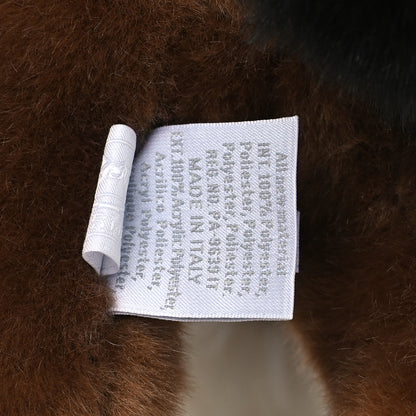 All new material
INT 100% Polyester,
Poliester,
Polyester, Poliester.
REG NO. PA-9639 IT
MADE IN ITALY
EXT 100% Acrylic Polyester,
Acrilico Poliester,
Acryl Polyester,
Poliester,